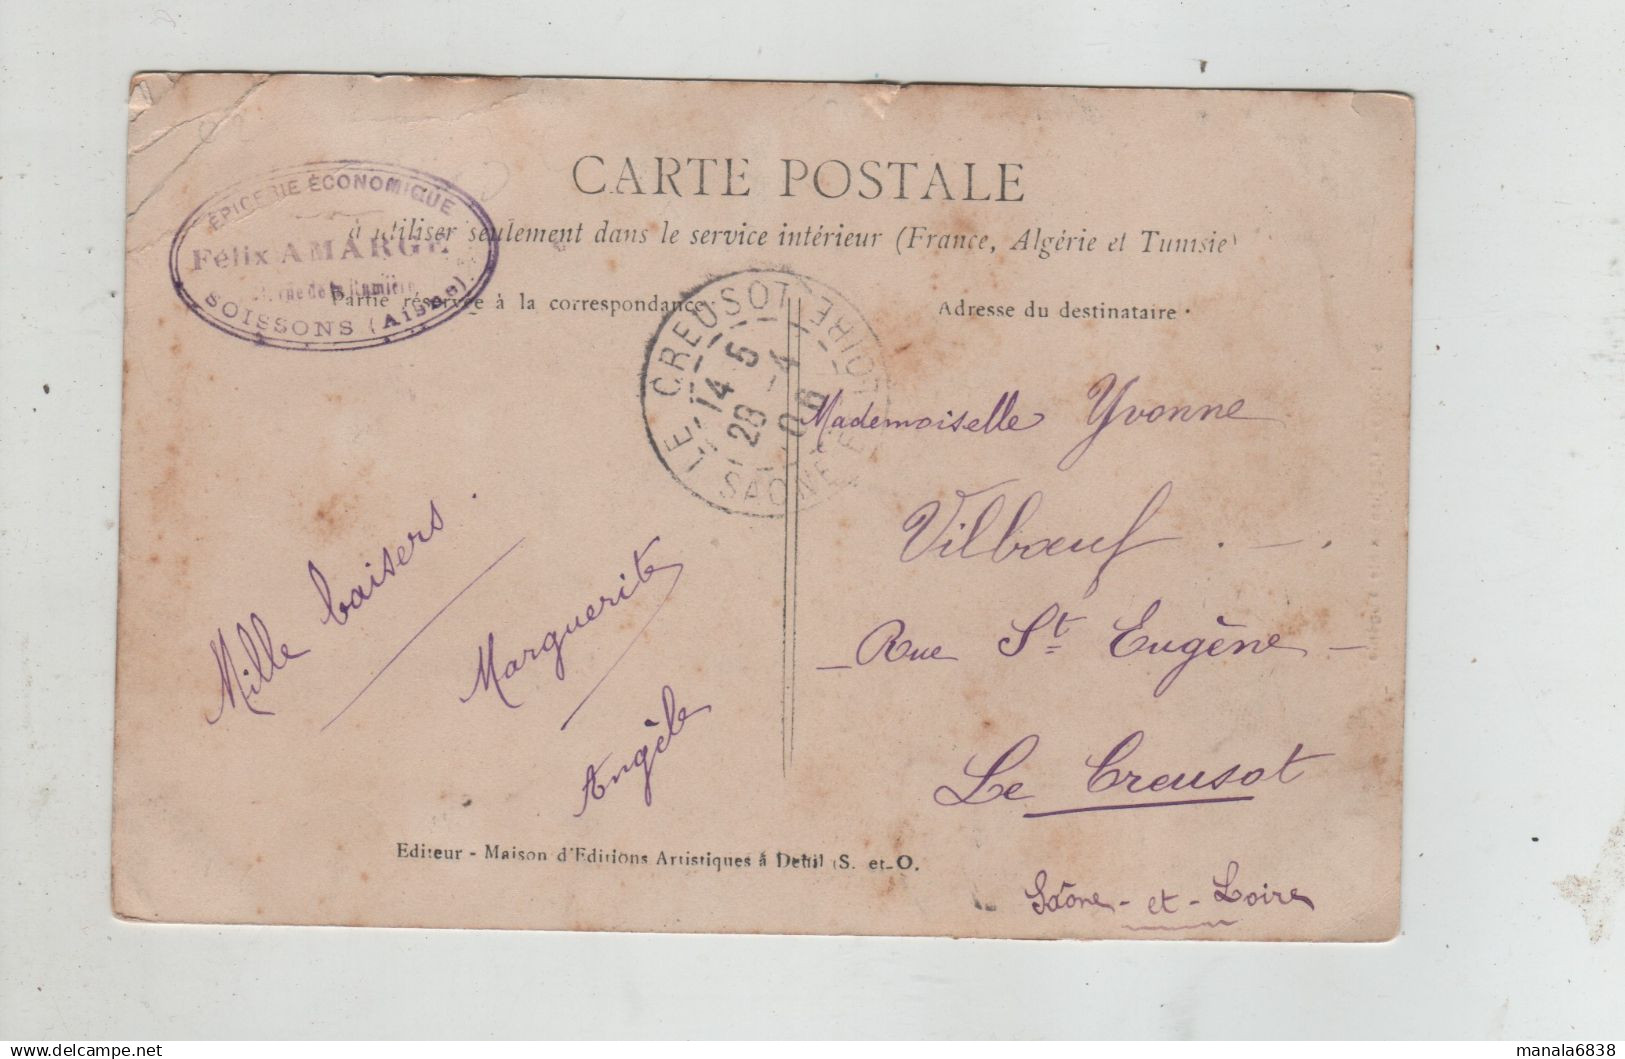 CARTE POSTALE
à utiliser seulement dans le service intérieur (France, Algérie et Tunisie)
ÉPICERIE ÉCONOMIQUE
Félix AMARGE
rue de la
SOISSONS (Aisne)
Partie réservée à la correspondance
Adresse du destinataire
LE CREUSOT
14 5
28 - 4
SAONE ET LOIRE
Mademoiselle Yvonne
Vilbœuf . — .
— Rue St Eugène —
Le Creusot
Saône - et - Loire
Mille baisers.
Marguerite
Angèle
Editeur - Maison d'Editions Artistiques à Deuil (S. et-O.
manala6838